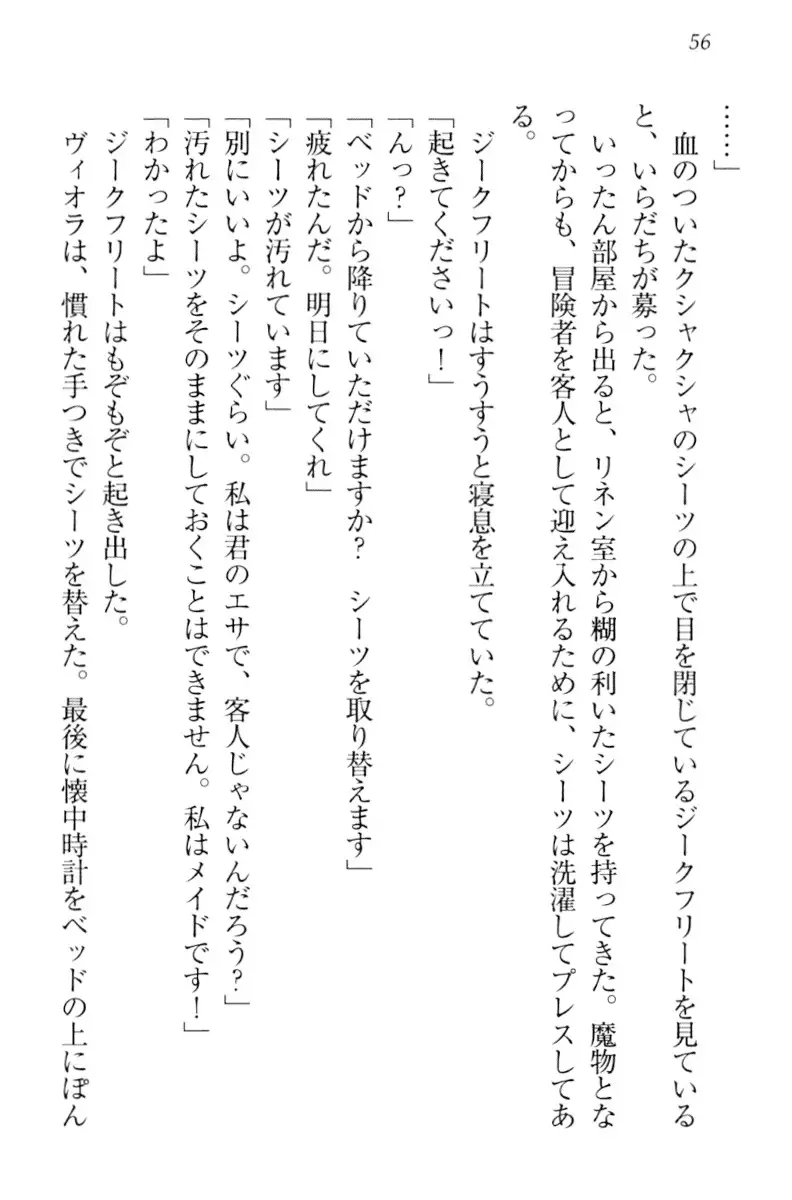 56
……」
血のついたクシャクシャのシーツの上で目を閉じているジークフリートを見ている
と、いらだちが募った。
いったん部屋から出ると、リネン室から糊の利いたシーツを持ってきた。魔物とな
ってからも、冒険者を客人として迎え入れるために、シーツは洗濯してプレスしてあ
る。
ジークフリートはすうすうと寝息を立てていた。
「起きてくださいっ！」
「んっ？」
「ベッドから降りていただけますか？　シーツを取り替えます」
「疲れたんだ。明日にしてくれ」
「シーツが汚れています」
「別にいいよ。シーツぐらい。私は君のエサで、客人じゃないんだろう？」
「汚れたシーツをそのままにしておくことはできません。私はメイドです！」
「わかったよ」
ジークフリートはもぞもぞと起き出した。
ヴィオラは、慣れた手つきでシーツを替えた。最後に懐中時計をベッドの上にぽん